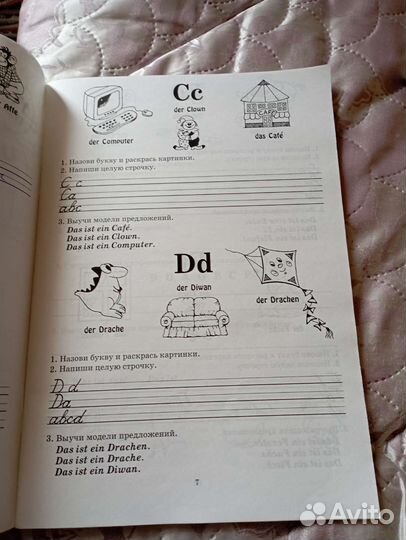 Affe
Cc
der Clown
CAFE
der Computer
das Café
1. Назови букву и раскрась картинки.
2. Напиши целую строчку.
C c
Ca
abc
3. Выучи модели предложений.
Das ist ein Café.
Das ist ein Clown.
Das ist ein Computer.
Dd
der Diwan
der Drachen
der Drache
1. Назови букву и раскрась картинки.
2. Напиши целую строчку.
D d
Da
abcd
3. Выучи модели предложений.
Das ist ein Drachen.
Das ist ein Drache.
Das ist ein Diwan.
7
Avito